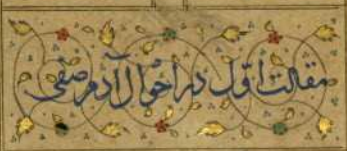 مقالت اول در احوال آدم صفی